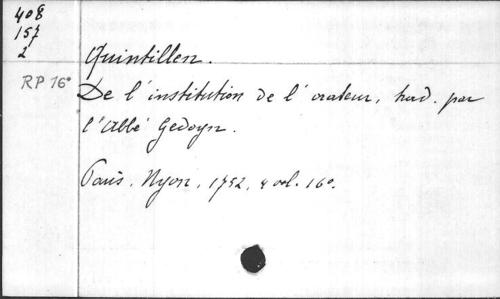 408
157
2
Quintilien.
RP 16°
De l'institution de l'orateur, trad. par
l'Abbé Gedoyn.
Paris, Nyon, 1752, 4 vol. 16°.